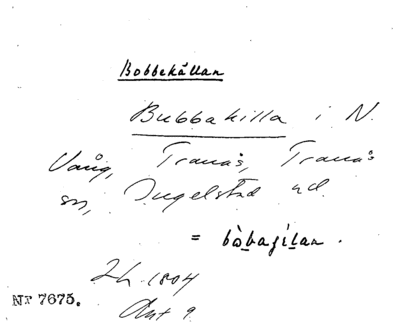 Bobbekällan
Bubbakilla i N.
Vång, Tranås, Tranås
sn, Ingelstad hd.
= bòbaɟílan.
Lh. 1804
Akt 9
Nr 7675.